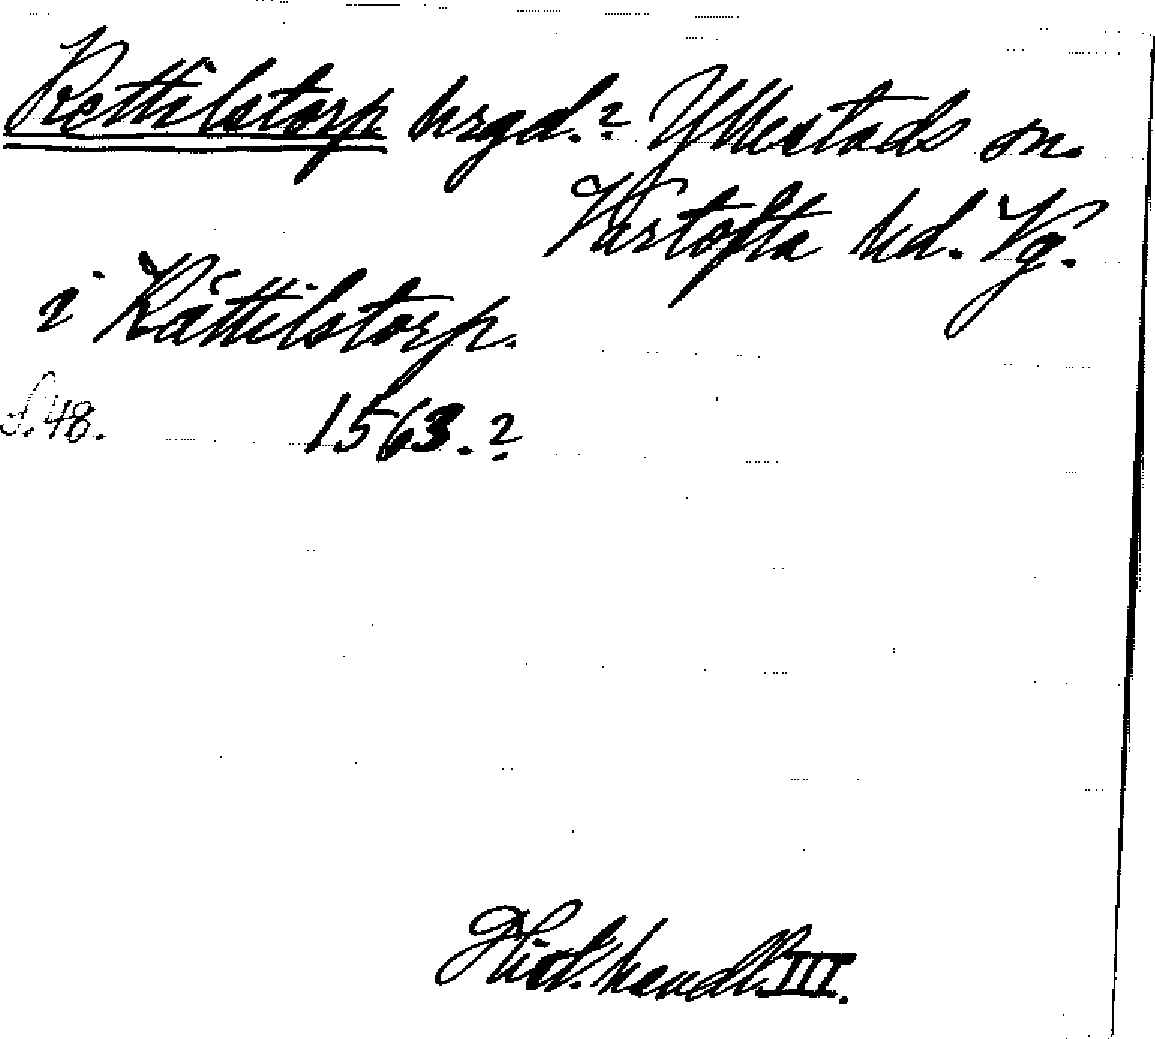 Kettilstorp hrgd.? Yllestads sn.
Vartofta hd. Vg.
i Kättilstorp.
S. 48. 1563.?
Hist. handl. III.